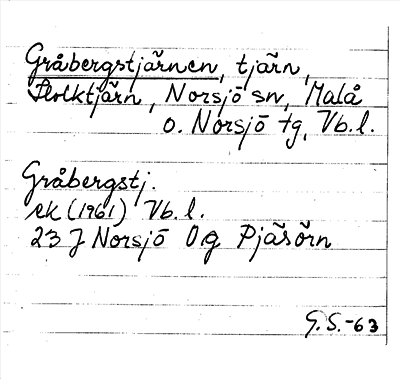 Gråbergstjärnen, tjärn,
Holktjärn, Norsjö sn, Malå
o. Norsjö tg, Vb.l.
Gråbergstj.
ek (1961) Vb.l.
23 J Norsjö Og Pjäsörn
G.S.-63